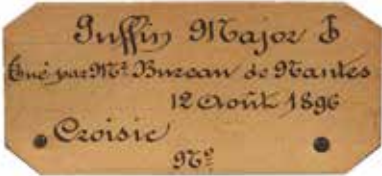 Puffin Major ♁
Tué par Mr Bureau de Nantes
12 Août 1896
Croisic
No